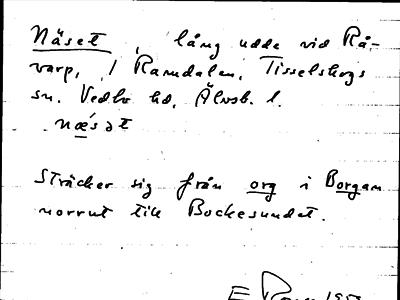 Näset lång udde vid Rå-
varp, i Ramdalen, Tisselskogs
sn. Vedbo hd, Älvsb. l.
næ´sət
Sträcker sig från org i Borgan
norrut till Bockesundet.
E